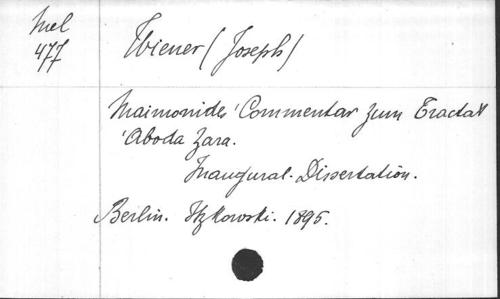 Mel
477
Wiener (Joseph)
Maimonides 'Commentar zum Tractat
'Aboda Zara.
Inaugural-Dissertation.
Berlin. Itzkowski. 1895.